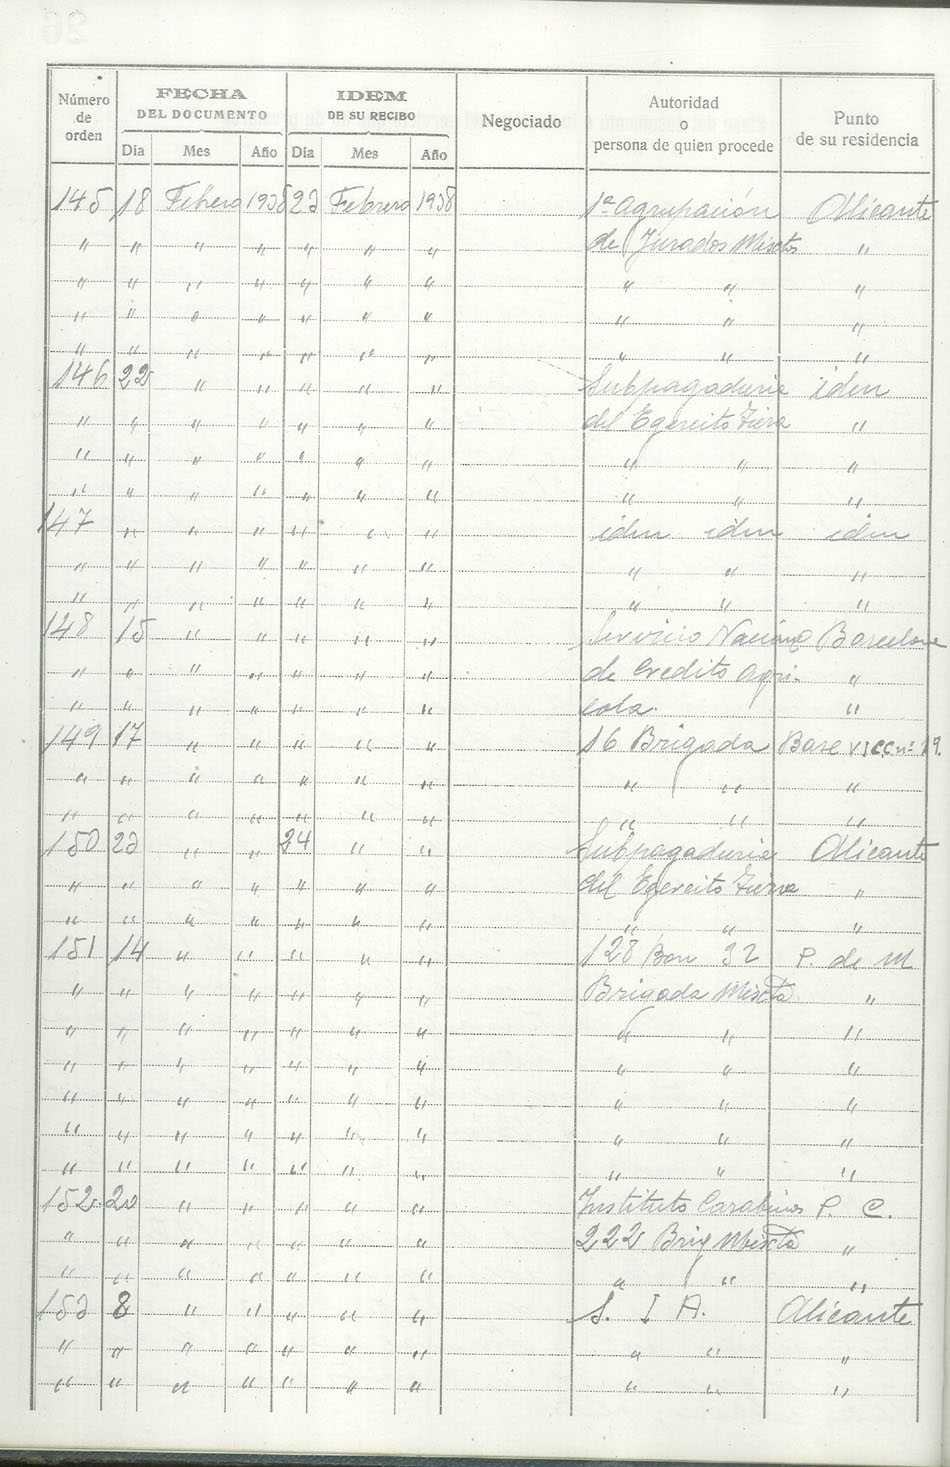 Número de orden | FECHA DEL DOCUMENTO | IDEM DE SU RECIBO | Negociado | Autoridad o persona de quien procede | Punto de su residencia
Día | Mes | Año | Día | Mes | Año
145 18 Febrero 1938 23 Febrero 1938 1ª Agrupación Alicante
" " " " " " " de Jurados Mixtos "
" " " " " " " " " "
" " " " " " " " " "
" " " " " " " " " "
146 22 " " " " " Subpagaduria iden
" " " " " " " del Egercito Tierra "
" " " " " " " " " "
" " " " " " " " " "
147 " " " " " " iden iden iden
" " " " " " " " " "
" " " " " " " " " "
148 15 " " " " " Servicio Nacional Barcelona
" " " " " " " de Credito Agri- "
" " " " " " " cola. "
149 17 " " " " " 16 Brigada Base VI CC nº 19.
" " " " " " " " " "
" " " " " " " " " "
150 23 " " 24 " " Subpagaduria Alicante
" " " " " " " del Egercito Tierra "
" " " " " " " " " "
151 14 " " " " " 128 Bon 32 P. de M
" " " " " " " Brigada Mixta "
" " " " " " " " " "
" " " " " " " " " "
" " " " " " " " " "
" " " " " " " " " "
" " " " " " " " " "
152 20 " " " " " Instituto Carabineros P. C.
" " " " " " " 222 Brig Mixta "
" " " " " " " " " "
153 8 " " " " " S. I A. Alicante
" " " " " " " " " "
" " " " " " " " " "